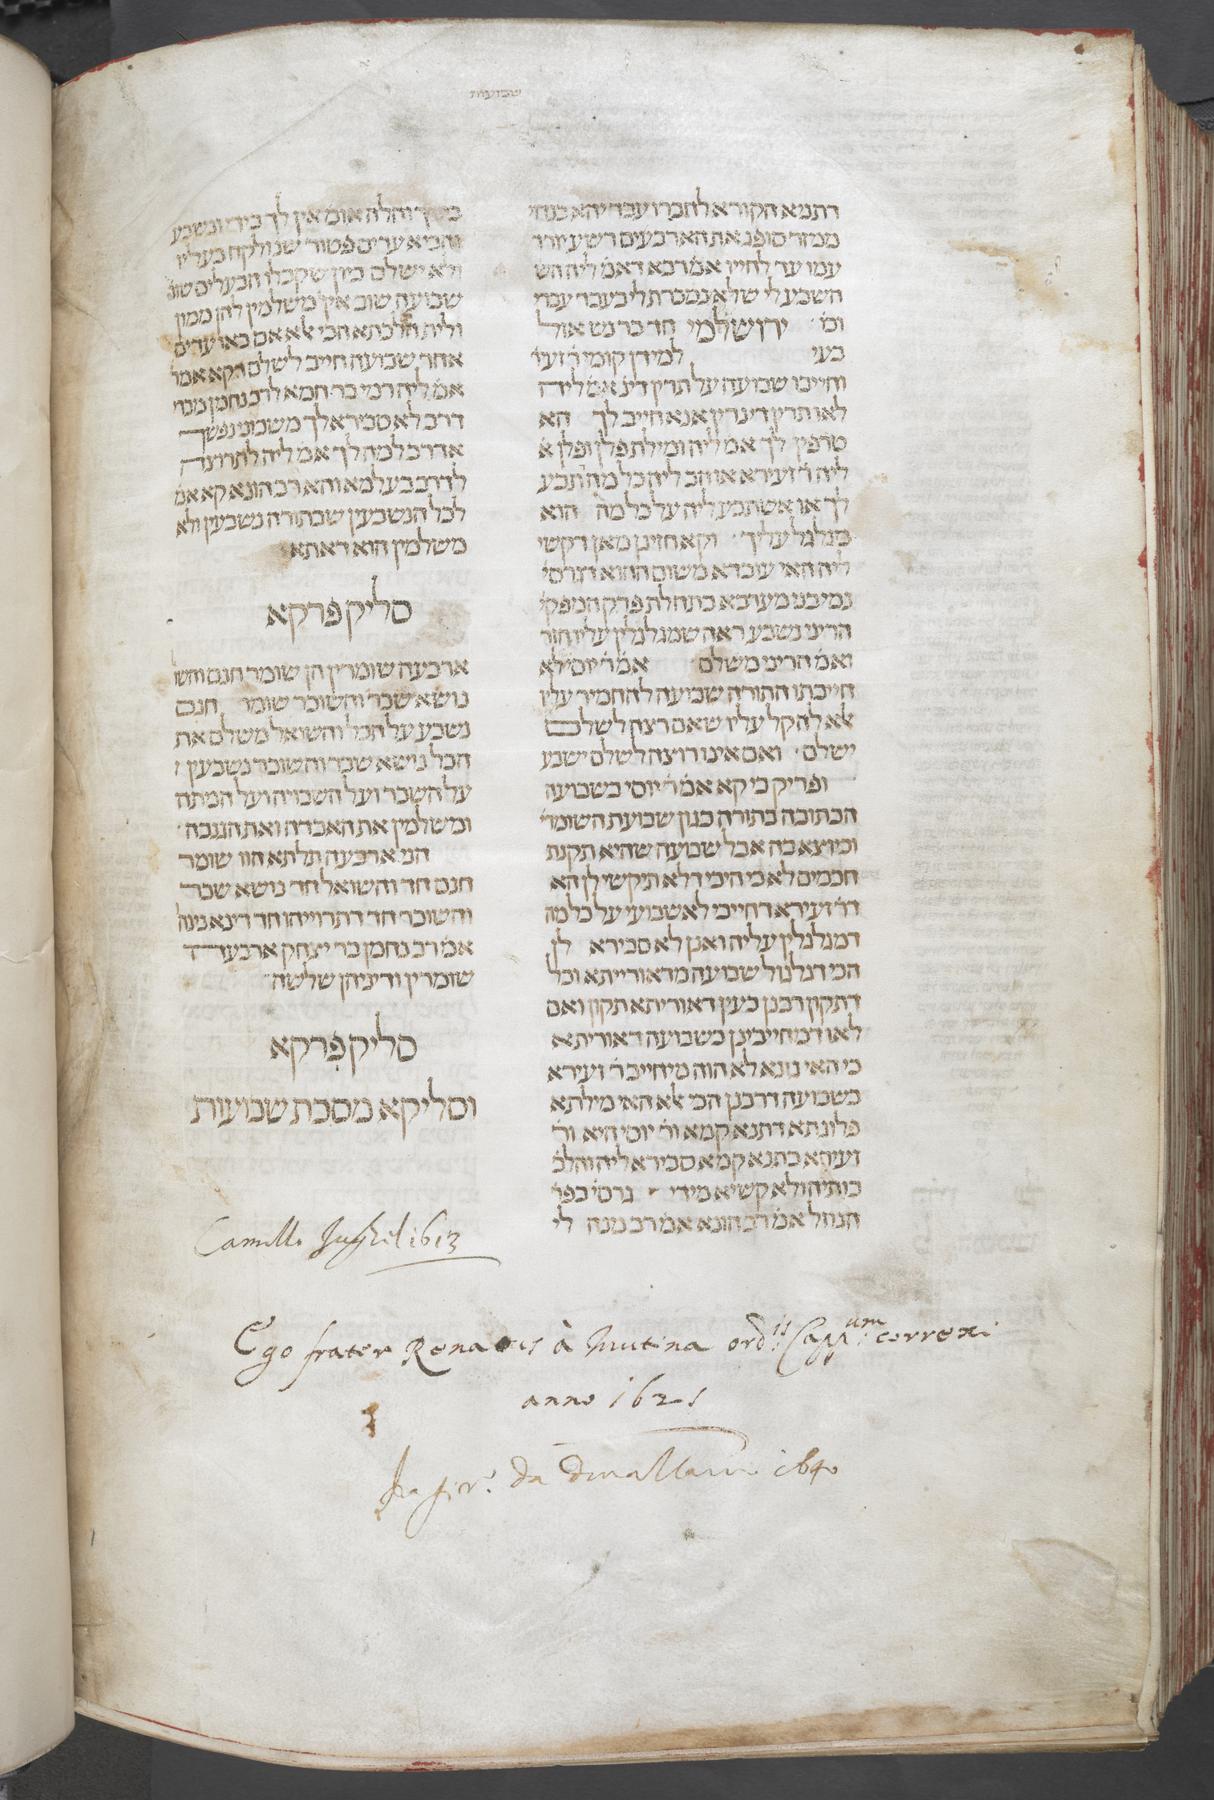 שבועות
דתניא הקורא לחברו עבד יהא בנדוי
ממזר סופג את הארבעים רשע יורד
עמו עד לחייו אמ׳ רבא דאמ׳ ליה הש
השבע לי שלא נמכרת לי בעבד עברי
וכו׳ ירושלמי חד בר נש אזל
בעי למידן קומי ר׳ זעי׳
וחייבו שבועה על תרין דינ׳ אמ׳ ליה
לאו תרין דינרין אנא חייב לך הא
טרפין לך אמ׳ ליה ומילת פלן ופלן א׳
ליה ר׳ זעירא או הב ליה כל מה תבע
לך או אשתבע ליה על כל מה הוא
מגלגל עליך וקא חזינן מאן דקשי
ליה האי עובדא משום ההוא דגרסי׳
נמי בני מערבא בתחלת פרק המפקי׳
הריני נשבע ראה שמגלגלין עליו חזר
ואמ׳ הריני משלם אמ׳ ר׳ יוסי לא
חייבתו התורה שבועה להחמיר עליו
אלא להקל עליו שאם רצה לשלם
ישלם ואם אינו רוצה לשלם ישבע
ופריק כי קא אמ׳ ר׳ יוסי בשבועה
הכתובה בתורה כגון שבועת השומר׳
וכיוצא בה אבל שבועה שהיא תקנת
חכמים לא כי היכי דלא תיקשי לן הא
דר׳ זעירא דחייבי לאשבועי על כל מה
דמגלגלין עליה ואנן לא סבירא לן
הכי דגלגול שבועה מדאורייתא וכל
דתקון רבנן כעין דאוריתא תקון ואם
לאו דמחייבינן בשבועה דאוריתא
כי האי גונא לא הוה מיחייב ר׳ זעירא
בשבועה דרבנן הכי אלא האי מילתא
פלוגתא דתנא קמא ור׳ יוסי היא ור׳
זעירא כתנא קמא סבירא ליה והלכ׳
כותיה ולא קשיא מידי גרסי׳ בפר׳
הגוזל אמ׳ רב הונא אמ׳ רב מנה לי
בידך והלה אומ׳ אין לך בידי ונשבע
והביא עדים פטור שנ׳ ולקח בעליו
ולא ישלם כיון שקבלו הבעלים שוב
שבועה שוב אין משלמין להן ממון
ולית הלכתא הכי אלא אם באו עדים
אחר שבועה חייב לשלם דקא אמ׳
אמ׳ ליה רמי בר חמא לרב נחמן מכדי
דרב לא סבירא לך משכוני נפשך
אדרב למה לך אמ׳ ליה לתרוצה
לדרב בעלמא והא רב הונא קא אמ׳
לכל הנשבעין שבתורה נשבעין ולא
משלמין הוא דאתא
סליק פרקא
ארבעה שומרין הן שומר חנם והשו׳
נושא שכר והשוכר שומר חנם
נשבע על הכל והשואל משלם את
הכל נושא שכר והשוכר נשבעין
על השבר ועל השבויה ועל המתה
ומשלמין את האבדה ואת הגנבה
הני ארבעה תלתא הוו שומר
חנם חד והשואל חד נושא שכר
והשוכר חד דתרוייהו חד דינא נינהו
אמ׳ רב נחמן בר יצחק ארבעה
שומרין ודיניהן שלשה
סליק פרקא
וסליקא מסכת שבועות
Camillo Jaghel 1613
Ego frater Renatus à Mutina ord:is Capp:um correxi
anno 1621
1640